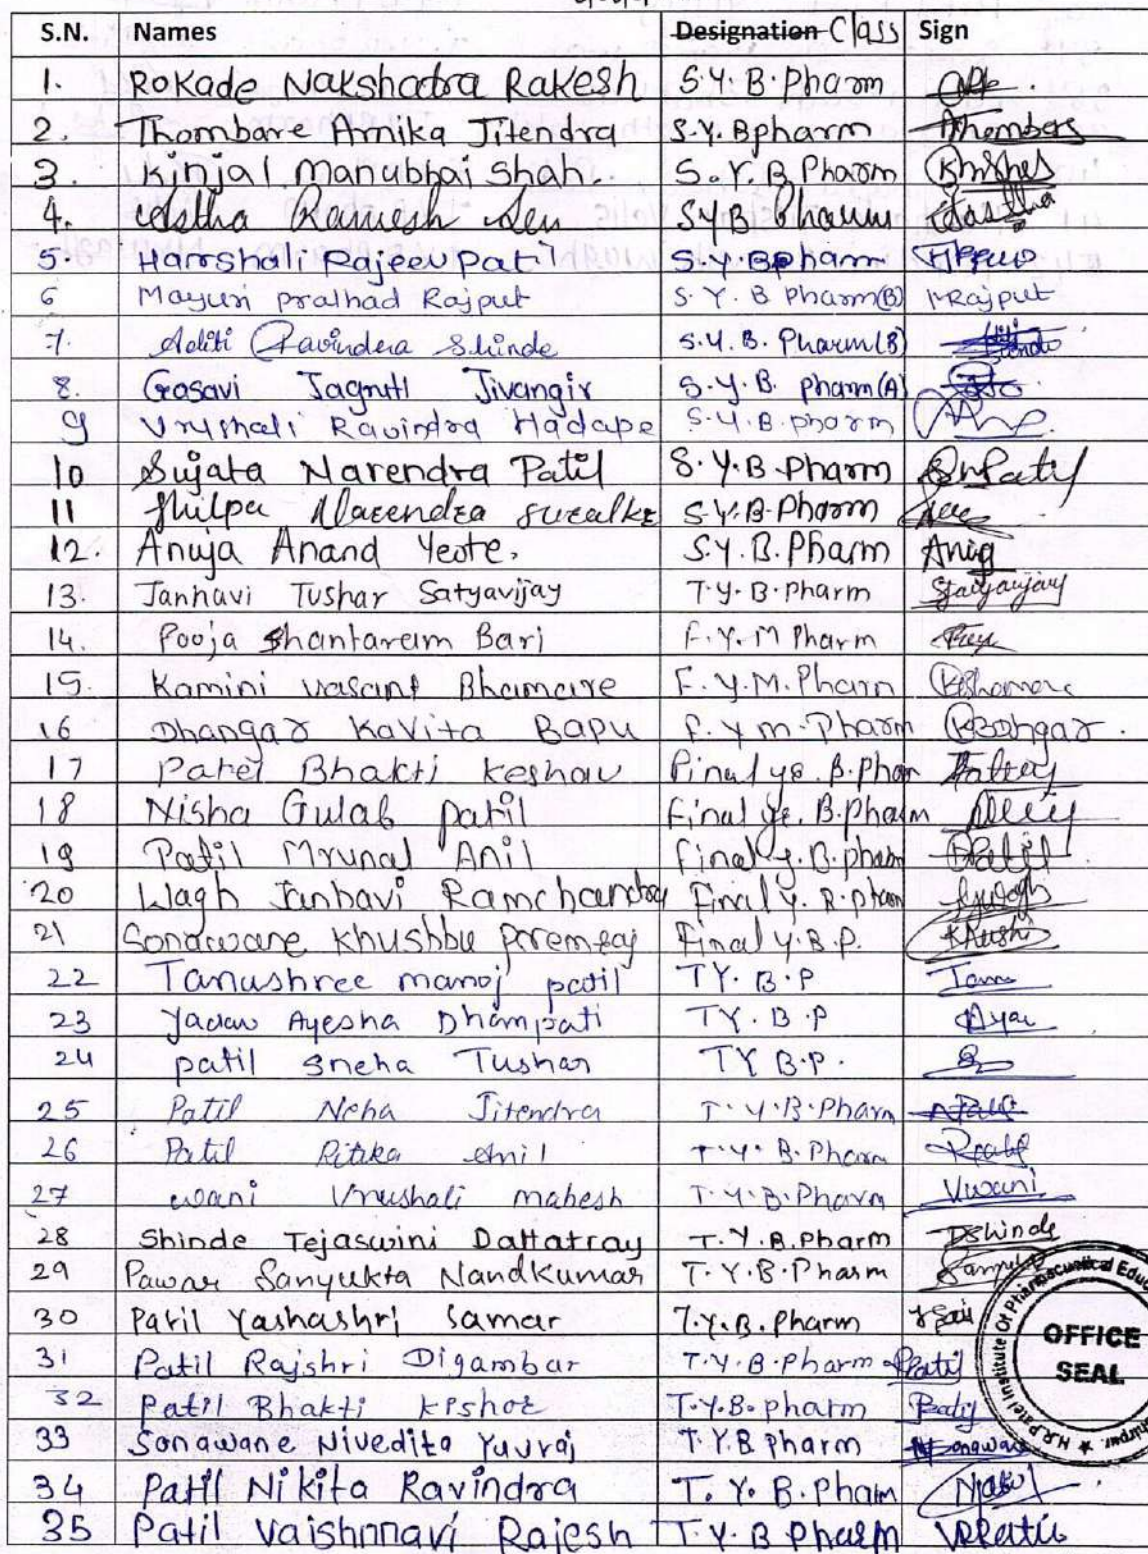 S.N. Names Designation Class Sign
1. Rokade Nakshatra Rakesh S.Y. B. Pharm
2. Thombare Arnika Jitendra S.Y. Bpharm Thombare
3. Kinjal Manubhai Shah. S.Y. B Pharm
4. Astha Ramesh Sen SYB Pharm Aastha
5. Harshali Rajeev Patil S.Y. Bpharm
6 Mayuri pralhad Rajput S.Y. B Pharm(B) MRajput
7. Aditi Ravindra Shinde S.Y. B. Pharm(B)
8. Gosavi Jagruti Jivangir S.Y.B. pharm(A)
9 Vrushali Ravindra Hadape S.Y.B. pharm
10 Sujata Narendra Patil S.Y.B Pharm SNPatil
11 Shilpa Narendra S.Y.B. Pharm
12. Anuja Anand Yeote. S.Y. B. Pharm Anuj
13. Janhavi Tushar Satyavijay T.Y. B. Pharm Satyavijay
14. Pooja Shantaram Bari F.Y. M Pharm
15. Kamini Vasant Bhamare F.Y.M. Pharm KBhamare
16 Dhangar Kavita Bapu F.Y M. Pharm KBDhangar.
17 Patel Bhakti Keshav Final ye. B. Phar
18 Nisha Gulab patil Final ye. B. Pharm
19 Patil Mrunal Anil Final y. B. pharm
20 Wagh Janhavi Ramchandra Final y. B. pharm
21 Sonawane Khushbu Premraj Final Y.B.P. Khushi
22 Tanushree manoj patil TY. B.P Tanu
23 Yadav Ayesha Dhampati TY. B.P Aya
24 patil Sneha Tushar TY B.P.
25 Patil Neha Jitendra T.Y.B. Pharm
26 Patil Ritika Anil T.Y. B. Pharm
27 wani Vrushali mahesh T.Y.B. Pharm Vwani
28 Shinde Tejaswini Dattatray T.Y.B. Pharm TDShinde
29 Pawar Sanyukta Nandkumar T.Y.B. Pharm
30 Patil Yashashri Samar T.Y.B. Pharm
31 Patil Rajshri Digambar T.Y.B. Pharm RPatil
32 Patil Bhakti Kishor T.Y.B. pharm
33 Sonawane Nivedita Yuvraj T.Y.B Pharm
34 Patil Nikita Ravindra T.Y. B. Pharm
35 Patil Vaishnnavi Rajesh T.Y. B Pharm VRPatil
H.R.Patel Institute Of Pharmaceutical Educ
OFFICE
SEAL